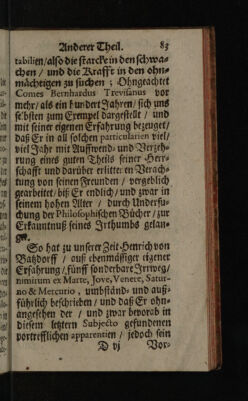 Anderer Theil. 83
tabilien/also die starcke in den schwa-
chen / und die Krafft in den ohn-
mächtigen zu suchen ; Ohngeachtet
Comes Bernhardus Trevisanus vor
mehr/als ein hundert Jahren/sich uns
selbsten zum Exempel dargestellt / und
mit seiner eigenen Erfahrung bezeuget/
daß Er in all solchen particularien viel/
viel Jahr mit Auffwend- und Verzeh-
rung eines guten Theils seiner Herr-
schafft und darüber erlitten Verach-
tung von seinen Freunden / vergeblich
gearbeitet/biß Er endlich/und zwar in
seinem hohen Alter / durch Undersu-
chung der Philosophischen Bücher/zur
Erkanntnuß seines Irthumbs gelan-
get.
So hat zu unserer Zeit Henrich von
Batzdorff / auß ebenmässiger eigener
Erfahrung / fünff sonderbare Irrweg/
nimirum ex Marte, Jove, Venere, Satur-
no & Mercurio, umbständ- und auß-
führlich beschrieben / und daß Er ohn-
angesehen der / und zwar bevorab in
diesem letztern Subjecto gefundenen
vortrefflichen apparentien / jedoch sein
D vj Vor-